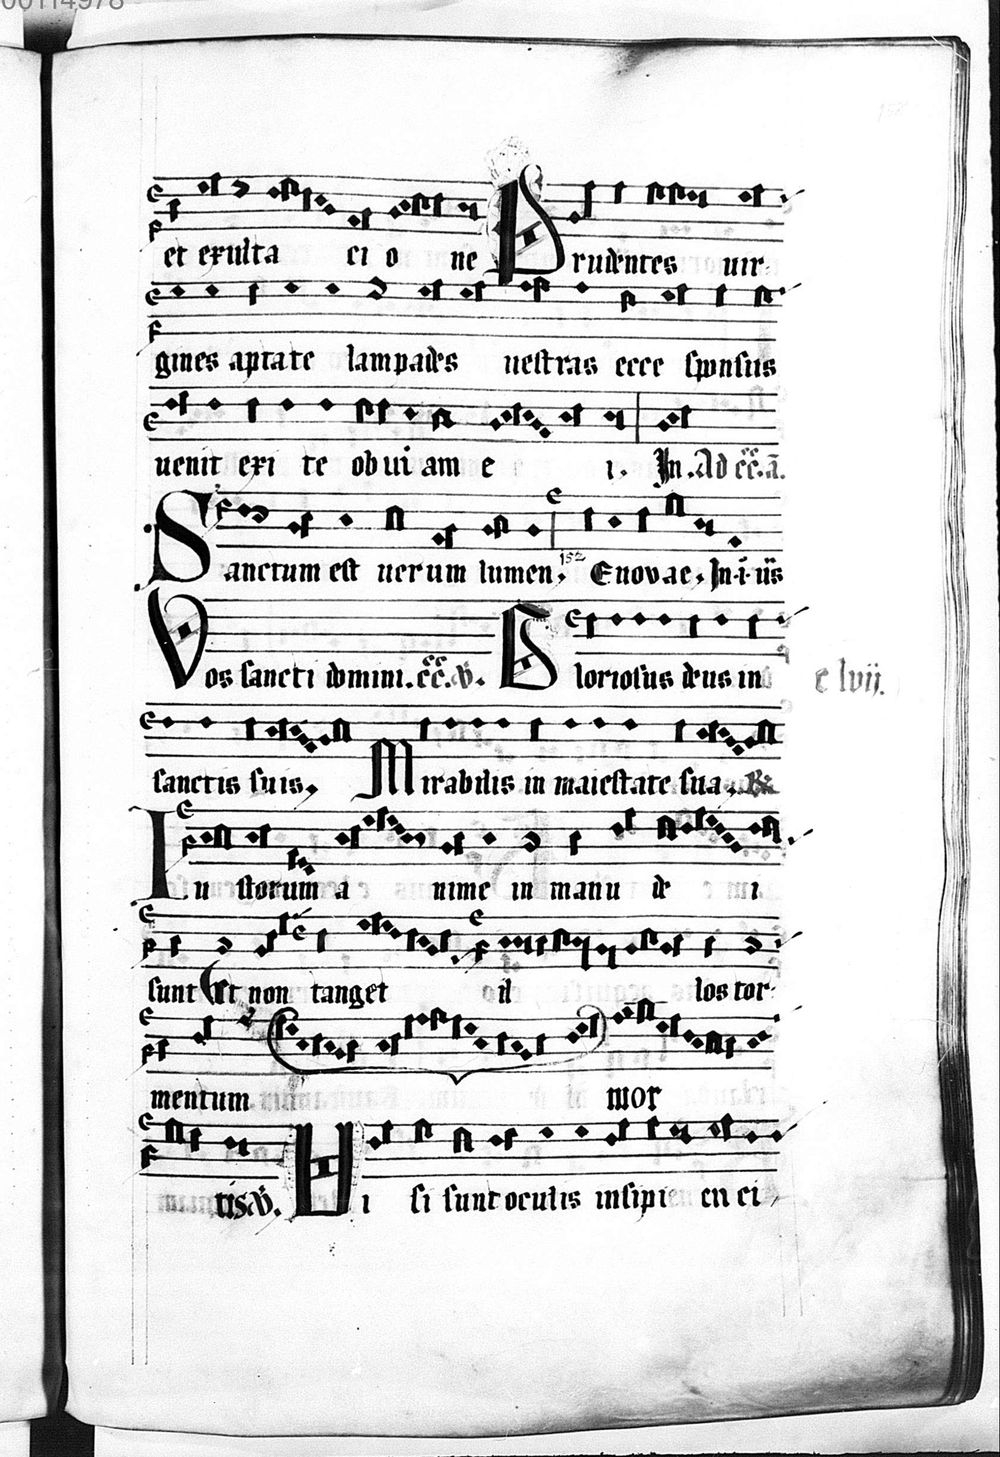 00114978
et exulta ci o ne Prudentes uir
gines aptate lampades uestras ecce sponsus
uenit exi te obuiam e i. In. Ad cc. a.
Sanctum est uerum lumen. 152 Euouae. In. i. us
Vos sancti domini. cc. v. Gloriosus deus in
c lvij.
sanctis suis. Mirabilis in maiestate sua. R.
Iustorum a nime in manu de i
sunt Et non tanget il los tor
mentum mor
tis. v. Ui si sunt oculis insipi en ci